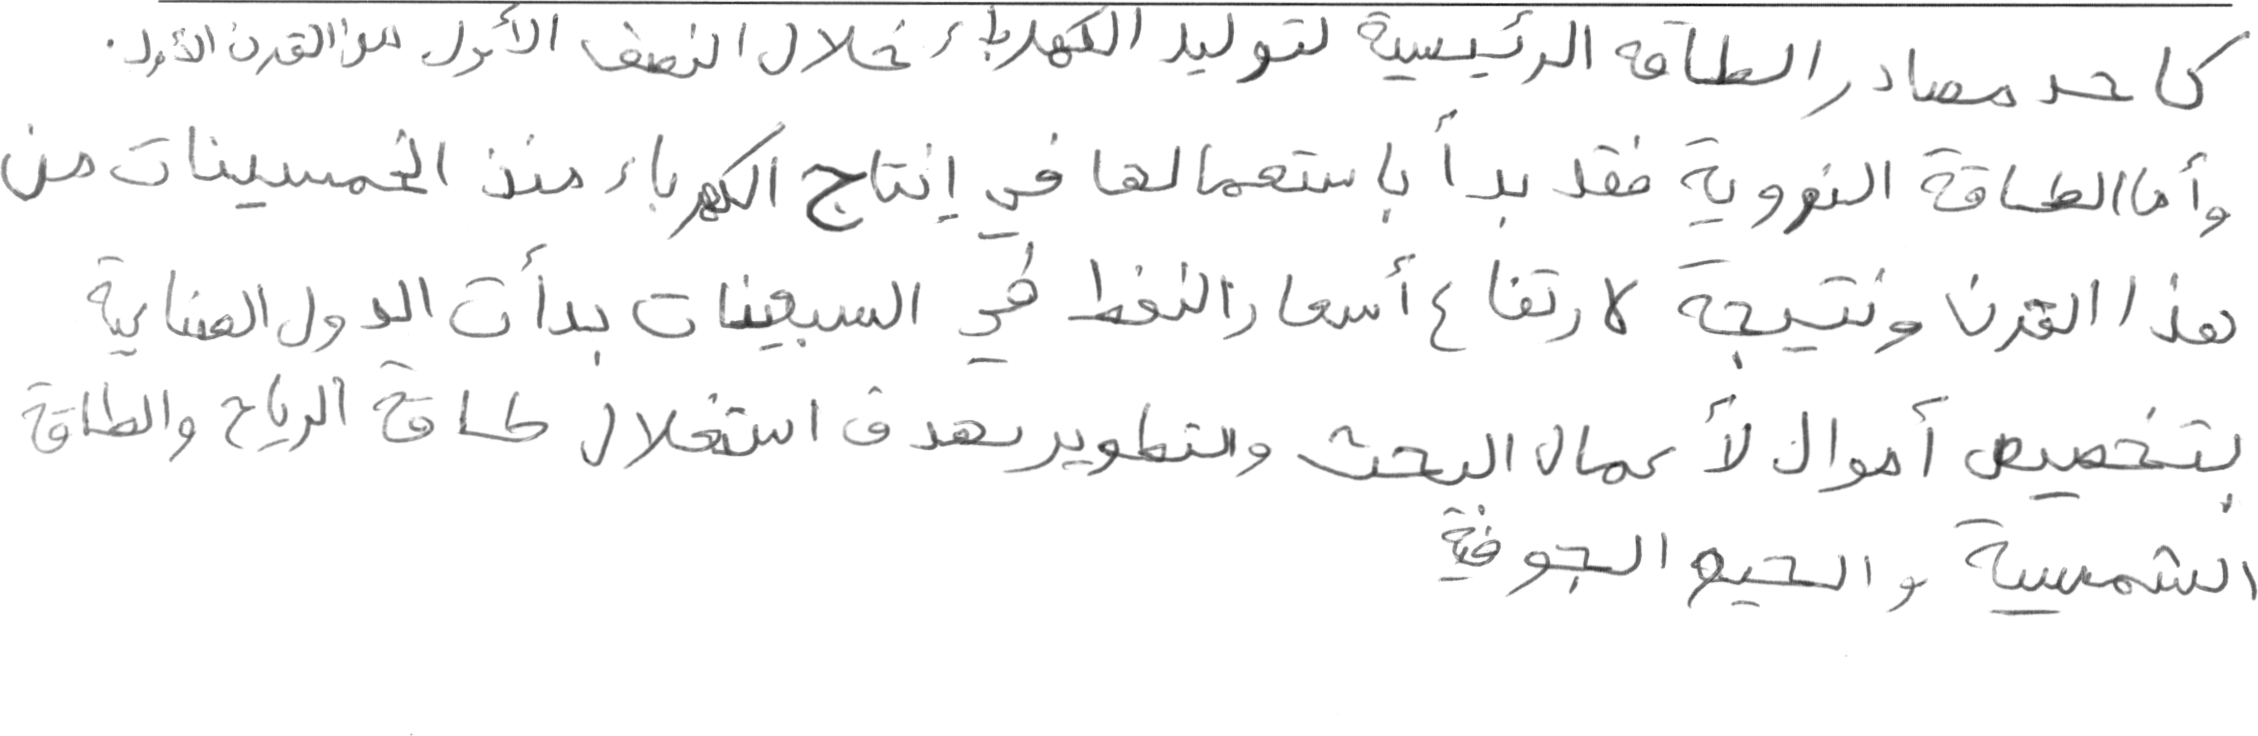 كاحد مصادر الطاقة الرئيسية لتوليد الكهرباء خلال النصف الأول من القرن الأول.
وأما الطاقة النووية فقد بدأ باستعمالها في إنتاج الكهرباء منذ الخمسينات من
هذا القرن ونتيجة لارتفاع أسعار النفط في السبعينات بدأت الدول الصناعية
بتخصيص أموال لأعمال البحث والتطوير بهدف استغلال طاقة الرياح والطاقة
الشمسية والحيو الجوفية